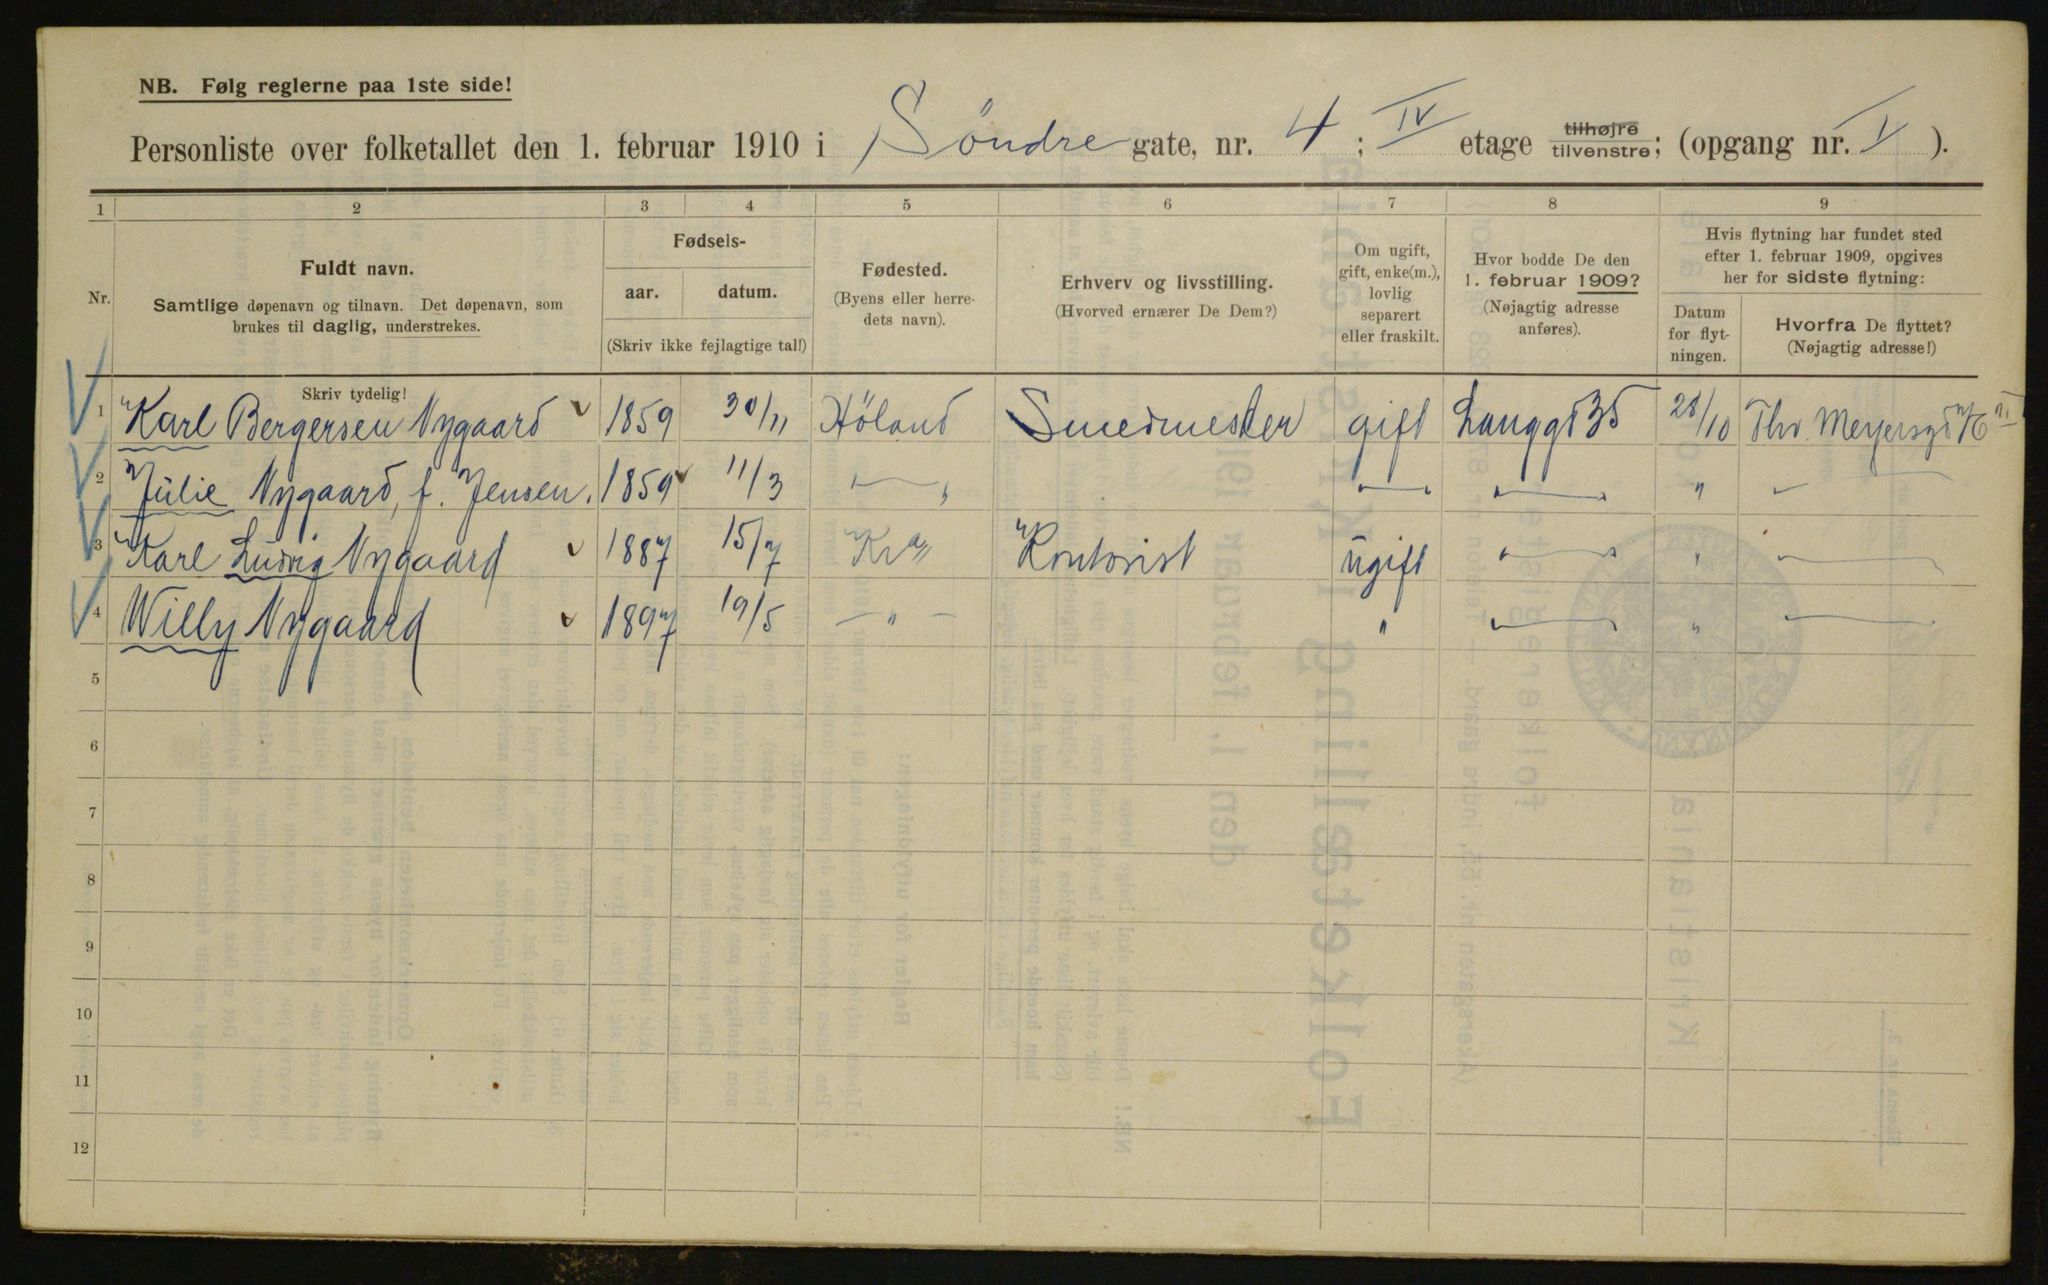 NB. Følg reglerne paa 1ste side!
Personliste over folketallet den 1. februar 1910 i Söndre gate, nr. 4 ; IV etage tilhøjre tilvenstre; (opgang nr. I ).
1 2 3 4 5 6 7 8 9
Nr.
Fuldt navn.
Samtlige døpenavn og tilnavn. Det døpenavn, som
brukes til daglig, understrekes.
Fødsels-
aar. datum.
(Skriv ikke fejlagtige tal!)
Fødested.
(Byens eller herre-
dets navn).
Erhverv og livsstilling.
(Hvorved ernærer De Dem?)
Om ugift,
gift, enke(m.),
lovlig
separert
eller fraskilt.
Hvor bodde De den
1. februar 1909?
(Nøjagtig adresse
anføres).
Hvis flytning har fundet sted
efter 1. februar 1909, opgives
her for sidste flytning:
Datum
for flyt-
ningen.
Hvorfra De flyttet?
(Nøjagtig adresse!)
Skriv tydelig!
1 Karl Bergersen Nygaard 1859 30/11 Höland Smedmester gift Langgd 35 28/10 Thv. Meyersgd 76 III
2 Julie Nygaard, f. Jensen. 1859 11/3 — „ — „ — „ —
3 Karl Ludvig Nygaard 1887 15/7 Kra Kontorist ugift — „ — „ —
4 Willy Nygaard 1897 19/5 — „ — „ — „ — „ —
5
6
7
8
9
10
11
12